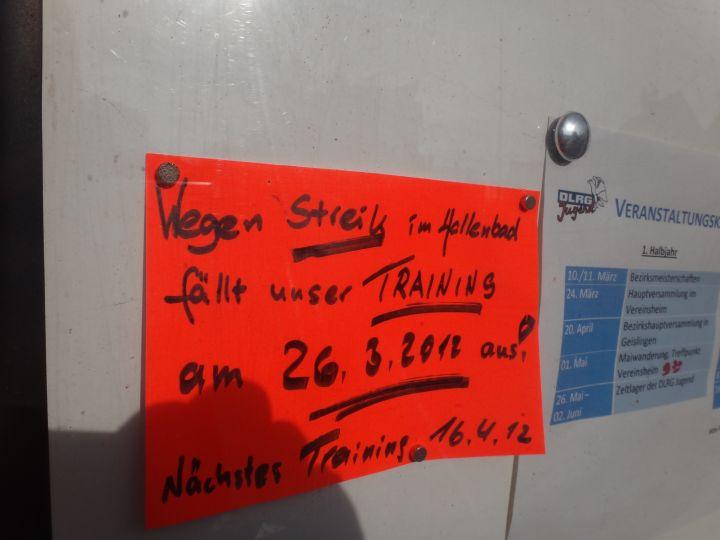 Wegen Streik im Hallenbad
fällt unser TRAINING
am 26.3.2012 aus!
Nächstes Training 16.4.12
DLRG
Jugend
VERANSTALTUNGSK
1. Halbjahr
10./11. März Bezirksmeisterschaften
24. März Hauptversammlung im
Vereinsheim
20. April Bezirkshauptversammlung in
Geislingen
01. Mai Maiwanderung, Treffpunkt
Vereinsheim
26. Mai – Zeltlager des DLRG Jugend
02. Juni